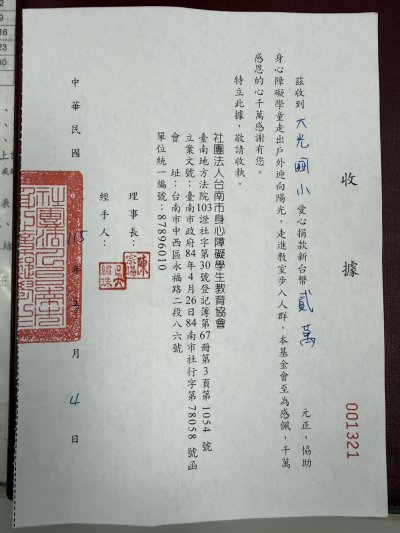 收據
001321
茲收到 大光國小 愛心捐款新台幣 貳萬 元正，協助
身心障礙學童走出戶外迎向陽光，走進教室步入人群，本基金會至為感佩，千萬
感恩的心千萬感謝有您。
特立此據，敬請收執。
社團法人台南市身心障礙學生教育協會
臺南地方法院103證社字第30號登記簿第67冊第3頁第1054號
立案文號：臺南市政府84年4月26日84南市社行字第78058號函
會址：台南市中西區永福路二段八六號
單位統一編號：87896010
理事長：
經手人：
中華民國 115 年 月 4 日